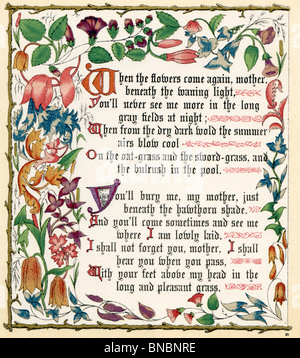 When the flowers come again, mother,
beneath the waning light,
You'll never see me more in the long
gray fields at night;
When from the dry dark wold the summer
airs blow cool
On the oat-grass and the sword-grass, and
the bulrush in the pool.
You'll bury me, my mother, just
beneath the hawthorn shade,
And you'll come sometimes and see me
where I am lowly laid.
I shall not forget you, mother, I shall
hear you when you pass,
With your feet above my head in the
long and pleasant grass.
alamy
Image ID: BNBNRE
www.alamy.com